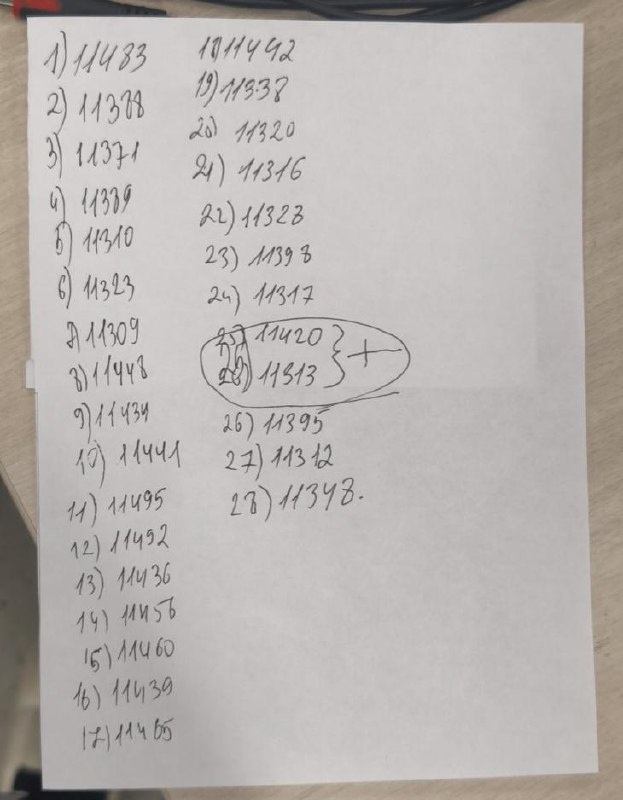 1) 11483
2) 11388
3) 11371
4) 11389
5) 11310
6) 11323
7) 11309
8) 11448
9) 11434
10) 11441
11) 11495
12) 11492
13) 11436
14) 11456
15) 11460
16) 11439
17) 11465
18) 11442
19) 11338
20) 11320
21) 11316
22) 11328
23) 11398
24) 11317
25) 11420
11313 } +
26) 11395
27) 11312
28) 11348.